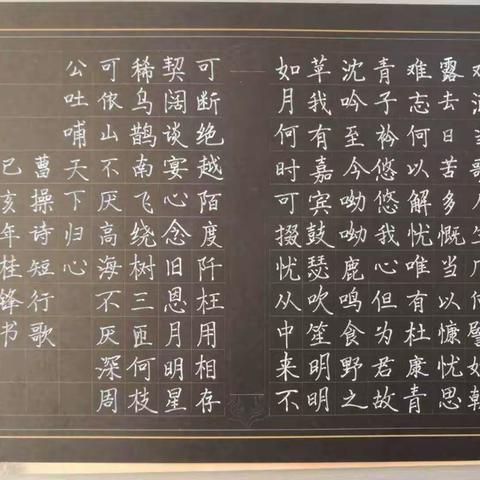 露去日苦多慨当以慷忧思
难忘何以解忧唯有杜康青
青子衿悠悠我心但为君故
沈吟至今呦呦鹿鸣食野之
苹我有嘉宾鼓瑟吹笙明明
如月何时可掇忧从中来不
可断绝越陌度阡枉用相存
契阔谈宴心念旧恩月明星
稀乌鹊南飞绕树三匝何枝
可依山不厌高海不厌深周
公吐哺天下归心
曹操诗短行歌
已亥年桂锋书